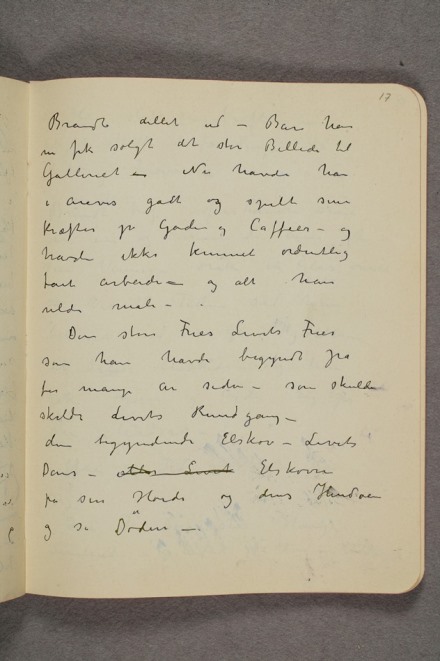 17
Brandt dillet ud – Bare han
nu fik solgt det store Billede til
Galleriet – Nu havde han
i årevis gått og spilt sine
Kræfter på Gaden og Caffeer – og
havde ikke kunnet ordentlig
tat arbeide – og alt han
vilde male –
Den store Fries Livets Fries
som han havde begyndt fra
for mange år siden – som skulde
skildre Livets Rundgang –
den begyndende Elskov – Livets
Dans – Elskoven
på sin Høide og dens
og så Døden –